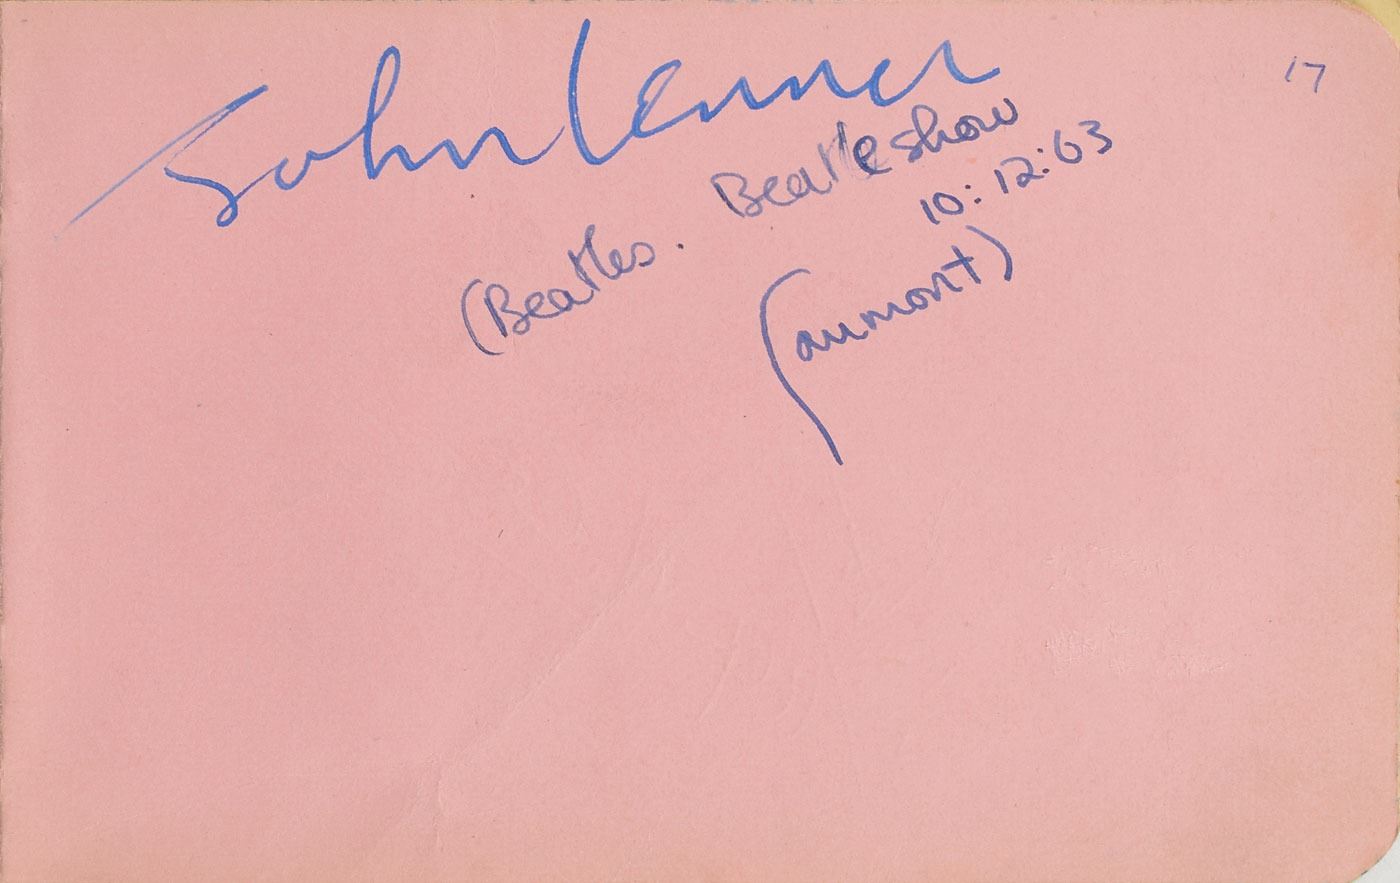 John Lennon
17
(Beatles. Beatleshow
10:12:63
Gaumont)